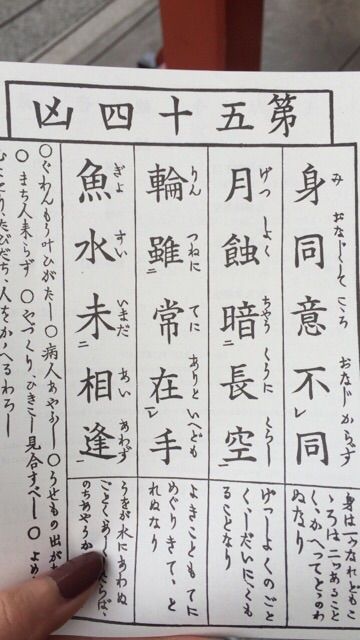 第五十四凶
み おなじくして こころ おなじからず
身同意不同
身は一つなれどもこ
ゝろは二つあること
く、かへってとゝのわ
ぬなり
げつしよく ちやうくうに くらし
月蝕暗長空
げつしよくのごと
く、しだいにくも
ることなり
りん つねに てに ありといへども
輪雖常在手
よきこともてに
めぐりきて、と
れぬなり
ぎよ すい いまだ あい あわず
魚水未相逢
うをが水にあわぬ
ごとくあ
のちあやうか
○ぐわんもう叶ひがたし ○病人あやふし ○うせもの出が
○まち人来らず ○やづくり、ひきこし見合すべし ○よめ
むことり、たびだち、人をかゝへるわろし